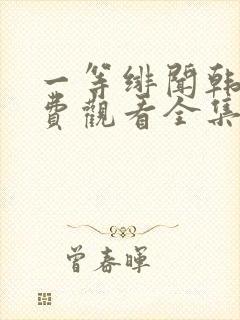 一等绯聞韩
費觀看全集
曾春暉